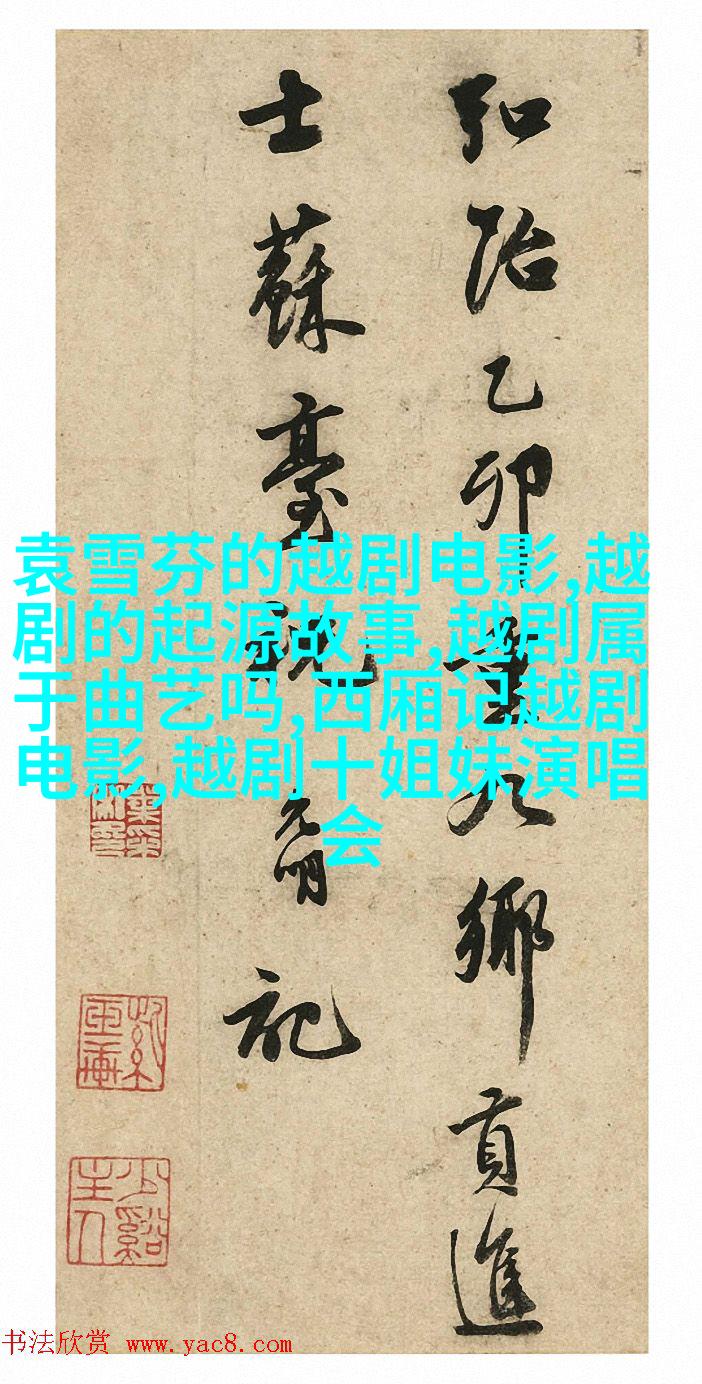 弘治乙卯重九鄉貢進
士蘇臺祝允明記
袁雪芬的越剧电影,越
剧的起源故事,越剧属
于曲艺吗,西厢记越剧
电影,越剧十姐妹演唱
会
少谿
主人
书法欣赏 www.yac8.com